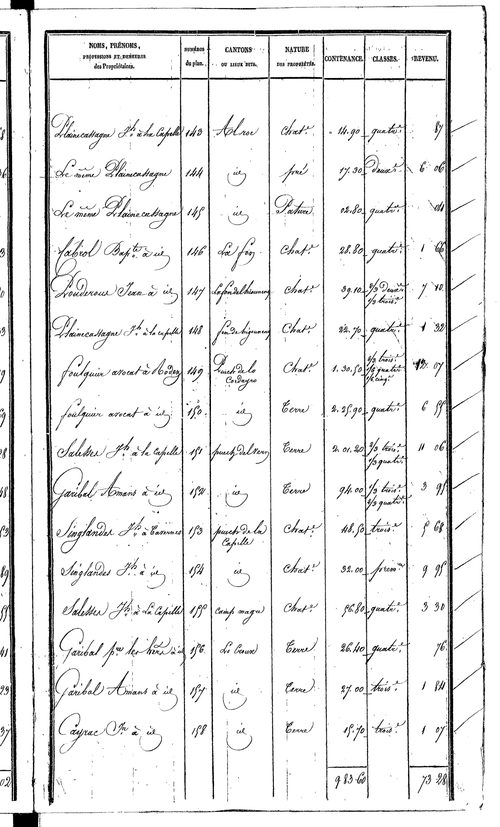 NOMS, PRÉNOMS, PROFESSIONS ET DEMEURES des Propriétaires. NUMÉROS du plan. CANTONS OU LIEUX DITS. NATURE DES PROPRIÉTÉS. CONTENANCE. CLASSES. REVENU.
Plainecassagne Jh. à la Capelle 143 Al roc Chat.e 14.90 quatr.e 87
Le même Plainecassagne 144 id pré 17.30 deux.e 6 06
Le même Plainecassagne 145 id Pature 02.80 quatr.e
Cabrol Bapt.te à id 146 La fon Chat.e 28.80 quatr.e 1 66
Pouderous Jean à id 147 Chat.e 39.10 2/3 deux.e 7 10
1/3 trois.e
Plainecassagne Jh. à la Capelle 148 Chat.e 22.70 quatr.e 1 32
foulquier avocat à Rodez 149 Puech de lo Chat.e 1.30.50 trois.e 12 07
quatr.e
cinq.e
foulquier avocat à id 150 id Terre 2.25.90 quatr.e 6 55
Salesses Jh. à la Capelle 151 Terre 2.01.20 2/3 trois.e 11 06
1/3 quatr.e
Garibal Amans à id 152 id Terre 94.00 1/3 trois.e 3 95
2/3 quatr.e
Singlandes Jh. à Tavernes 153 puech de la Chat.e 48.50 trois.e 5 68
Capelle
Singlandes Jh. à id 154 id Chat.e 32.00 prem.e 9 95
Salesses Jh. à La Capelle 155 camp magu Chat.e 56.80 quatr.e 3 30
Garibal p.re les hérs à id 156 Terre 26.40 quatr.e 76
Garibal Amans à id 157 id Terre 27.00 trois.e 1 84
Cayrac Jn à id 158 id Terre 15.70 trois.e 1 07
9 83.60 73 28